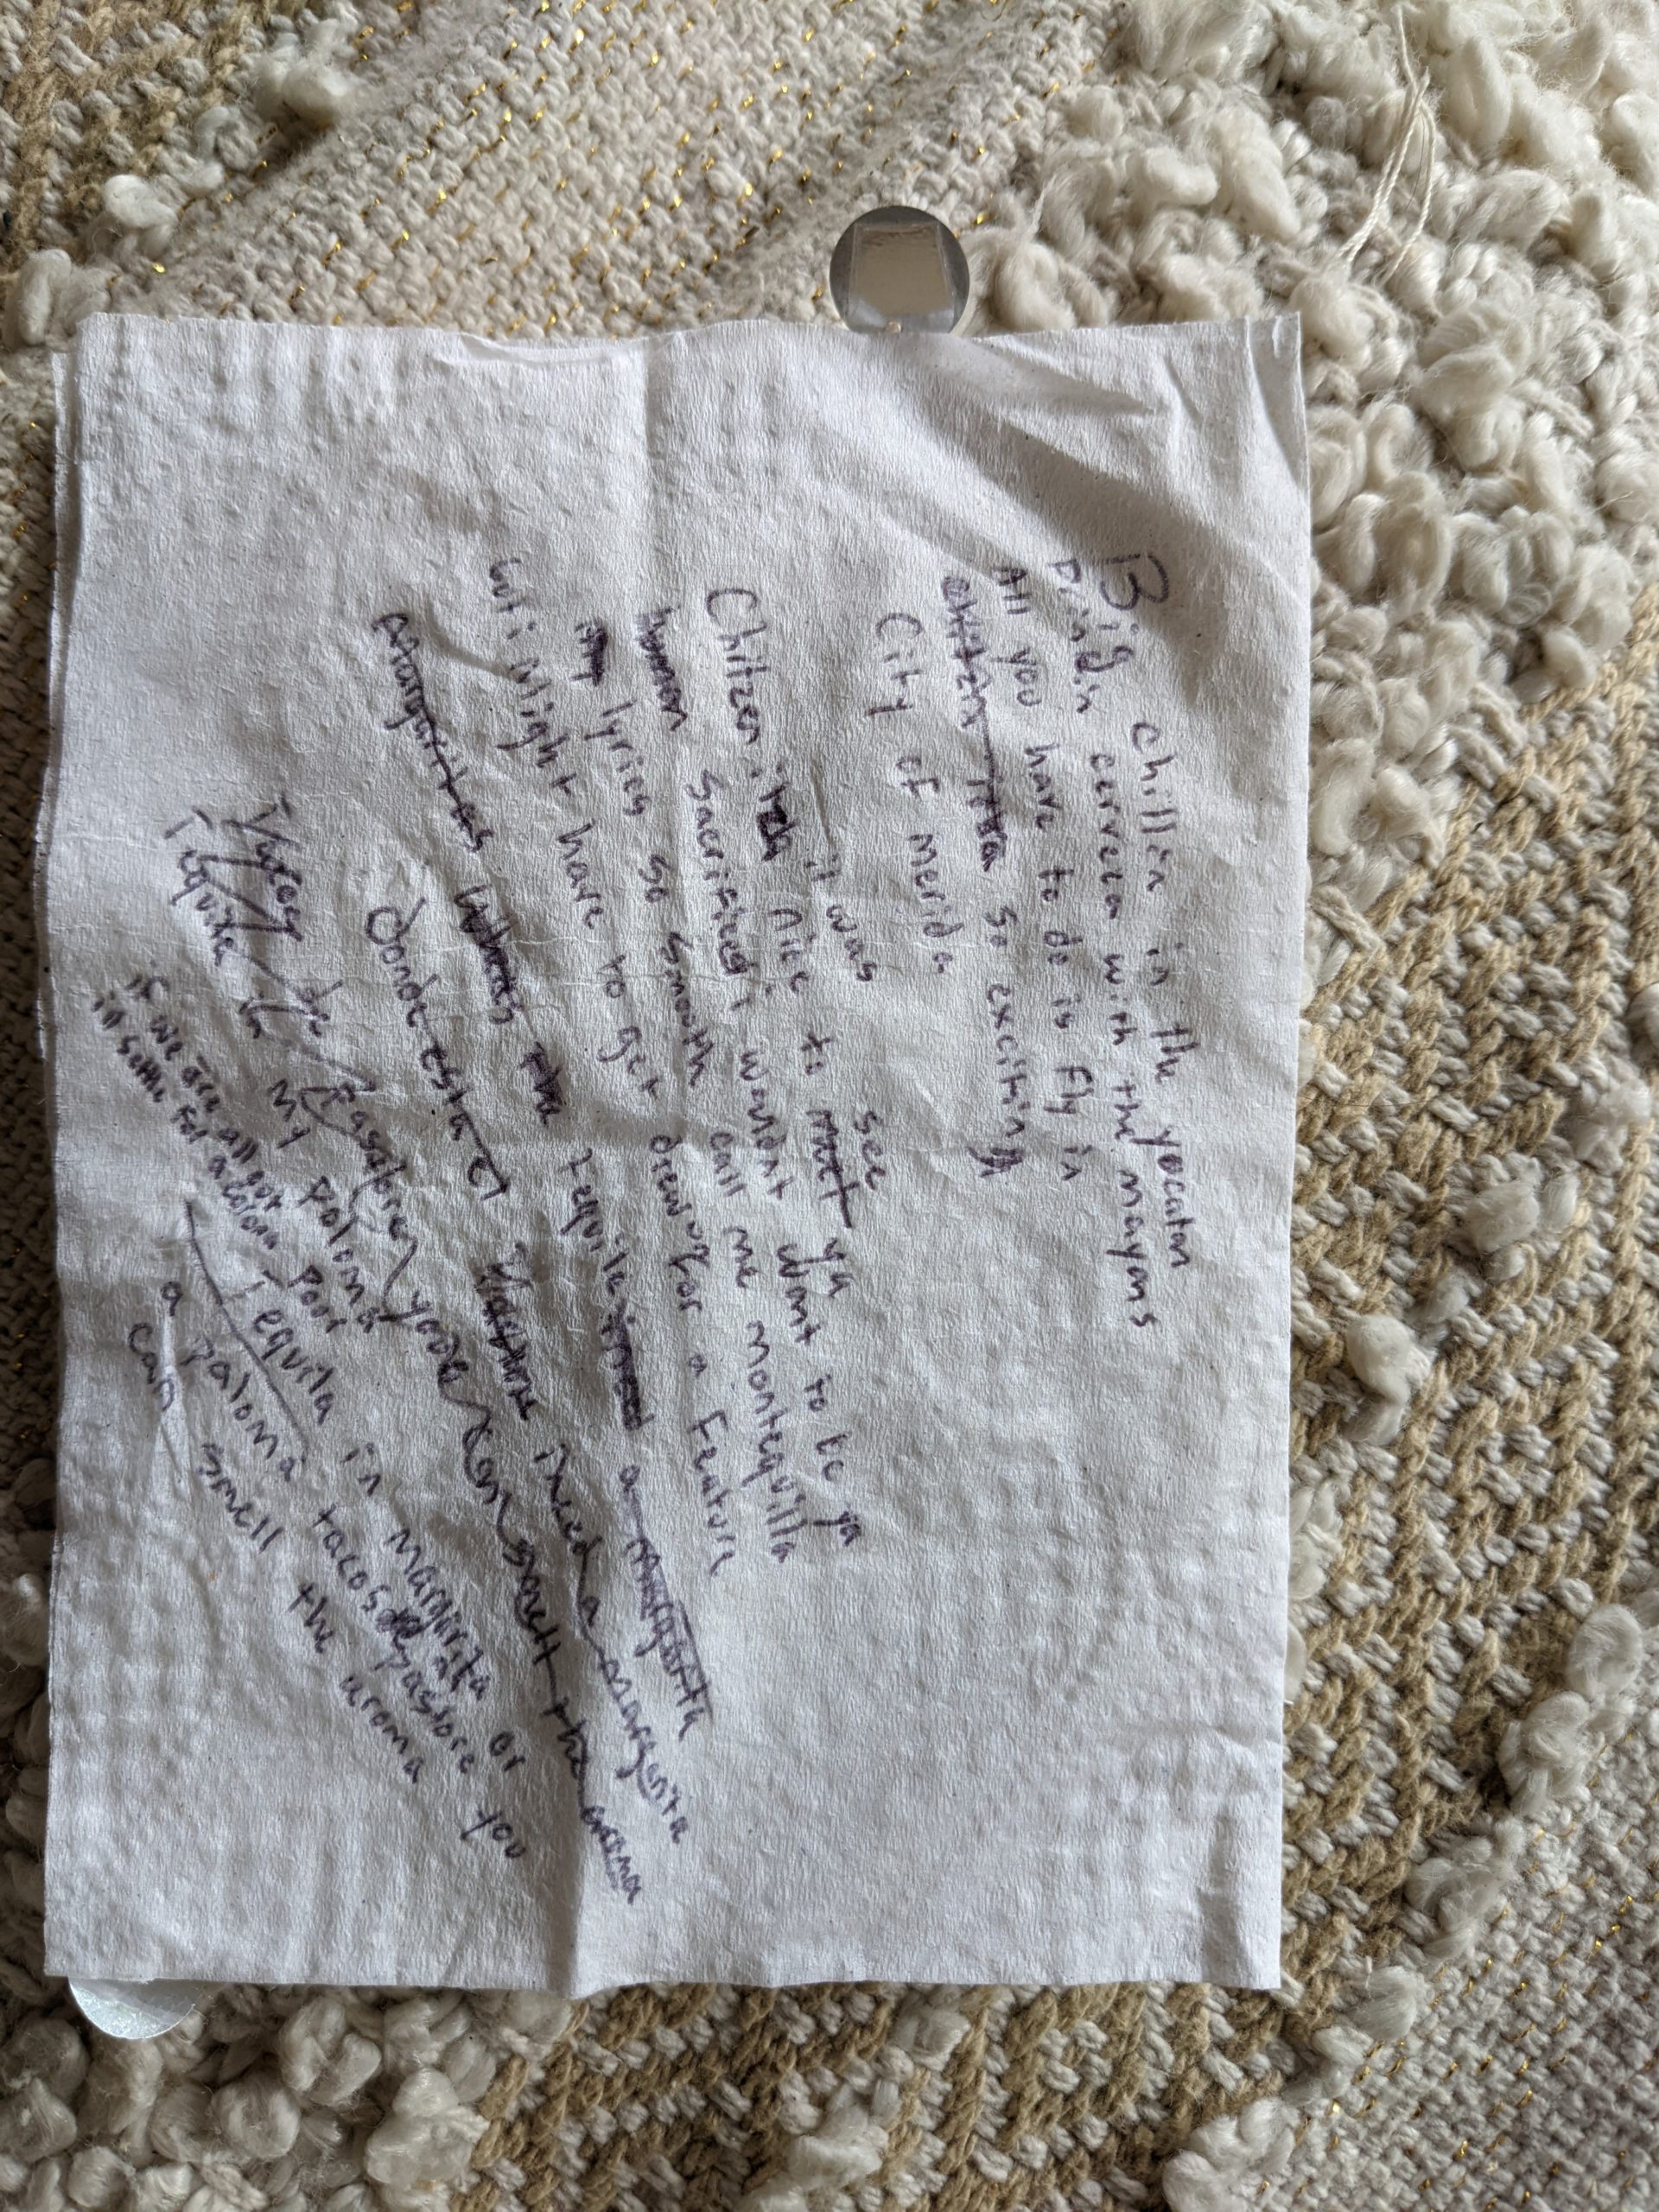 Big chillin in the yucatan
Drinkin cerveza with the mayans
All you have to do is fly in
chitzen itza so exciting
City of merida
it was see
Chitzen nice to meet ya
human sacrifice i wouldnt want to be ya
lyrics so smooth call me montequilla
but i might have to get drew up for a feature
margaritas the tequila a margarita
donde esta el i need a margarita
tacos de pastore you can smell the aroma
Tequila in
My paloma
if we are all out pour
in some for a corona
Tequila in margirita or
a paloma tacos de pastore you
can smell the aroma